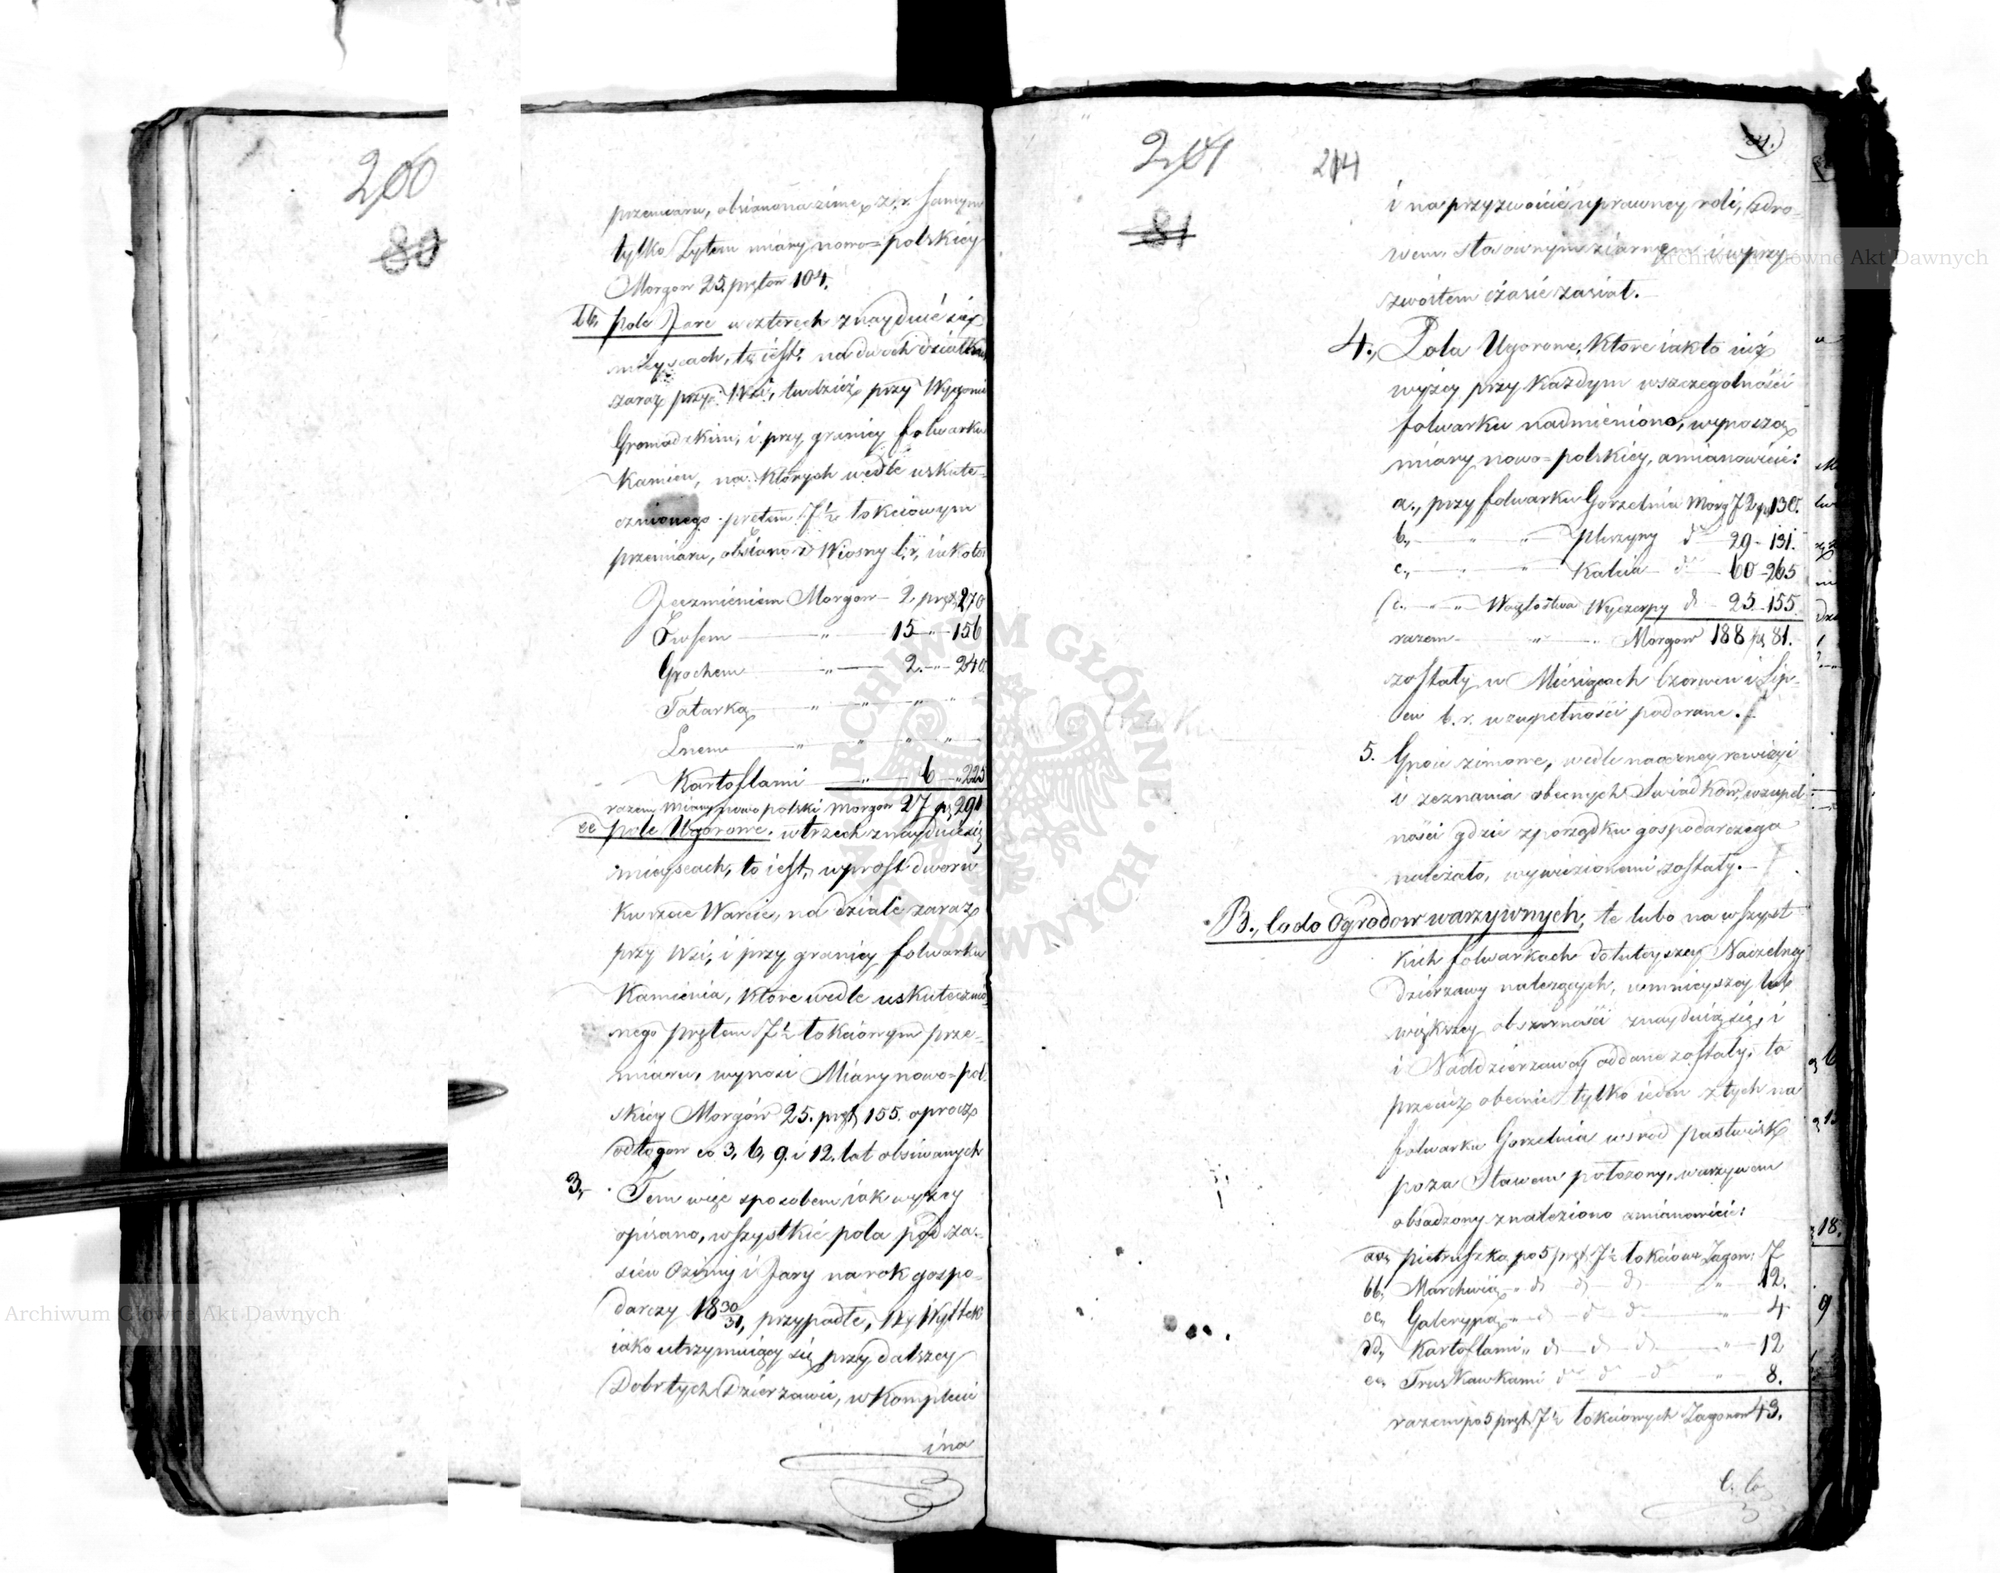 200
80
przemiaru, obsianona zimę z. r. samym
tylko Żytem miary nowo=polskiey
Morgow 25. prętow 104.
bb, pole Jare w czterech znayduie się
mieyscach, to iest: na dwoch działkach
zaraz przy Wsi, tudzież przy Wygonie
Gromadzkim, i przy granicy folwarku
Kamien, na których wedle uskute=
cznionego prętem 7½ łokciowym
przemiaru, obsiano z Wiosny b. r. iakoto:
Jęczmieniem Morgow — 2. pręt. 270
Owsem — " — 15 — " — 156
Grochem — " — 2. — " — 240.
Tatarką — " — " — " — "
Lnem — " — " — " — "
Kartoflami — " — 6 — " 225
razem Miary nowo polski Morgow 27 pr. 291
cc pole Ugorowe, w trzech znayduie się
mieyscach, to iest, wprost dworu
ku rzece Warcie, na dziale zaraz
przy Wsi, i przy granicy folwarku
Kamienia, które wedle uskutecznio=
nego prętem 7½ łokciowym prze=
miaru, wynosi Miary nowo=pol
skiey Morgów 25. pręt. 155. oprocz
odłogow co 3, 6, 9. i 12. lat obsiwanych
3, Tem więc sposobem iak wyżey
opisano, wszystkie pola pod za=
siew Ozimy i Jary na rok gospo=
darczy 18 30/31, przypadłe,
iako utrzymuiący się przy dalszey
Dobr tych Dzierzawie, w komplecie
ina
201
214
81
81.)
i na przyzwoicie uprawney roli, zdro=
wem, stosownym ziarnem i w przy
zwoitem czasie zasiał. —
4., Pola Ugorowe, które iak to iuż
wyżey przy każdym w szczegolności
folwarku nadmieniono, wynoszą
miary nowo=polskiey, a mianowicie:
a., przy folwarku Gorzelnia Morg 72 pr. 130.
b., — " — " Pluzyny do — 29 — 131.
c., — " — " Kalwa do — 60 — 265
— " — " Woytostwa Wyczerpy do — 25 — 155.
razem — " — " — Morgow 188 pr. 81.
zostały w Miesiącach Czerwcu i Lip=
cu b. r. w zupełności podorane. —
5. Gnoie zimowe, wedle naoczney rewizyi
i zeznania obecnych Świadkow, w zupeł
ności gdzie z porządku gospodarczego
należało, wywiezionemi zostały. —
B., Co do Ogrodow warzywnych, te lubo na wszyst
kich folwarkach do tuteyszey Naczelney
dzierzawy należących, w mnieyszey lub
większey obszerności znayduią się, i
i Naddzierzawcy oddane zostały, to
przecież obecnie tylko ieden z tych na
folwarku Gorzelnia wsrod pastwisk
poza Stawem położony, warzywem
obsadzony znaleziono a mianowicie:
aa, pietruszką po 5 pręt. 7½ łokciow. Zagon: 7
bb, Marchwią " do do do " 12.
cc, Galerepą " do do do " 4
dd, Kartoflami " do do do " 12
ee, Truskawkami do do do " 8.
razem po 5 pręt. 7½ łokciowych Zagonow 43.
C. Co